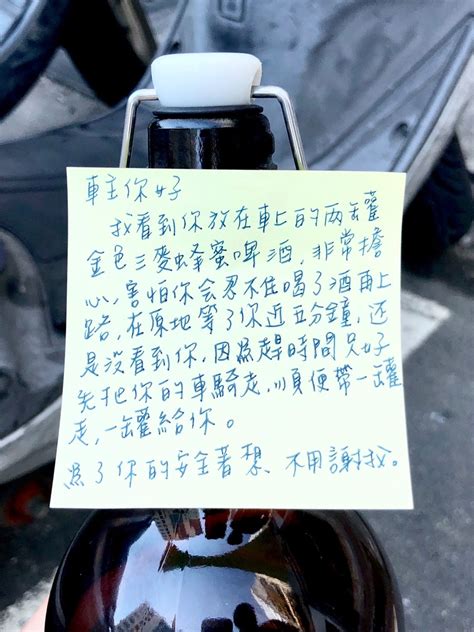 車主你好
我看到你放在車上的兩罐
金色三麥蜂蜜啤酒，非常擔
心，害怕你会忍不住喝了酒再上
路，在原地等了你近五分鐘，还
是没看到你，因為趕時間只好
先把你的車騎走，順便帶一罐
走，一罐給你。
為了你的安全著想，不用謝我。